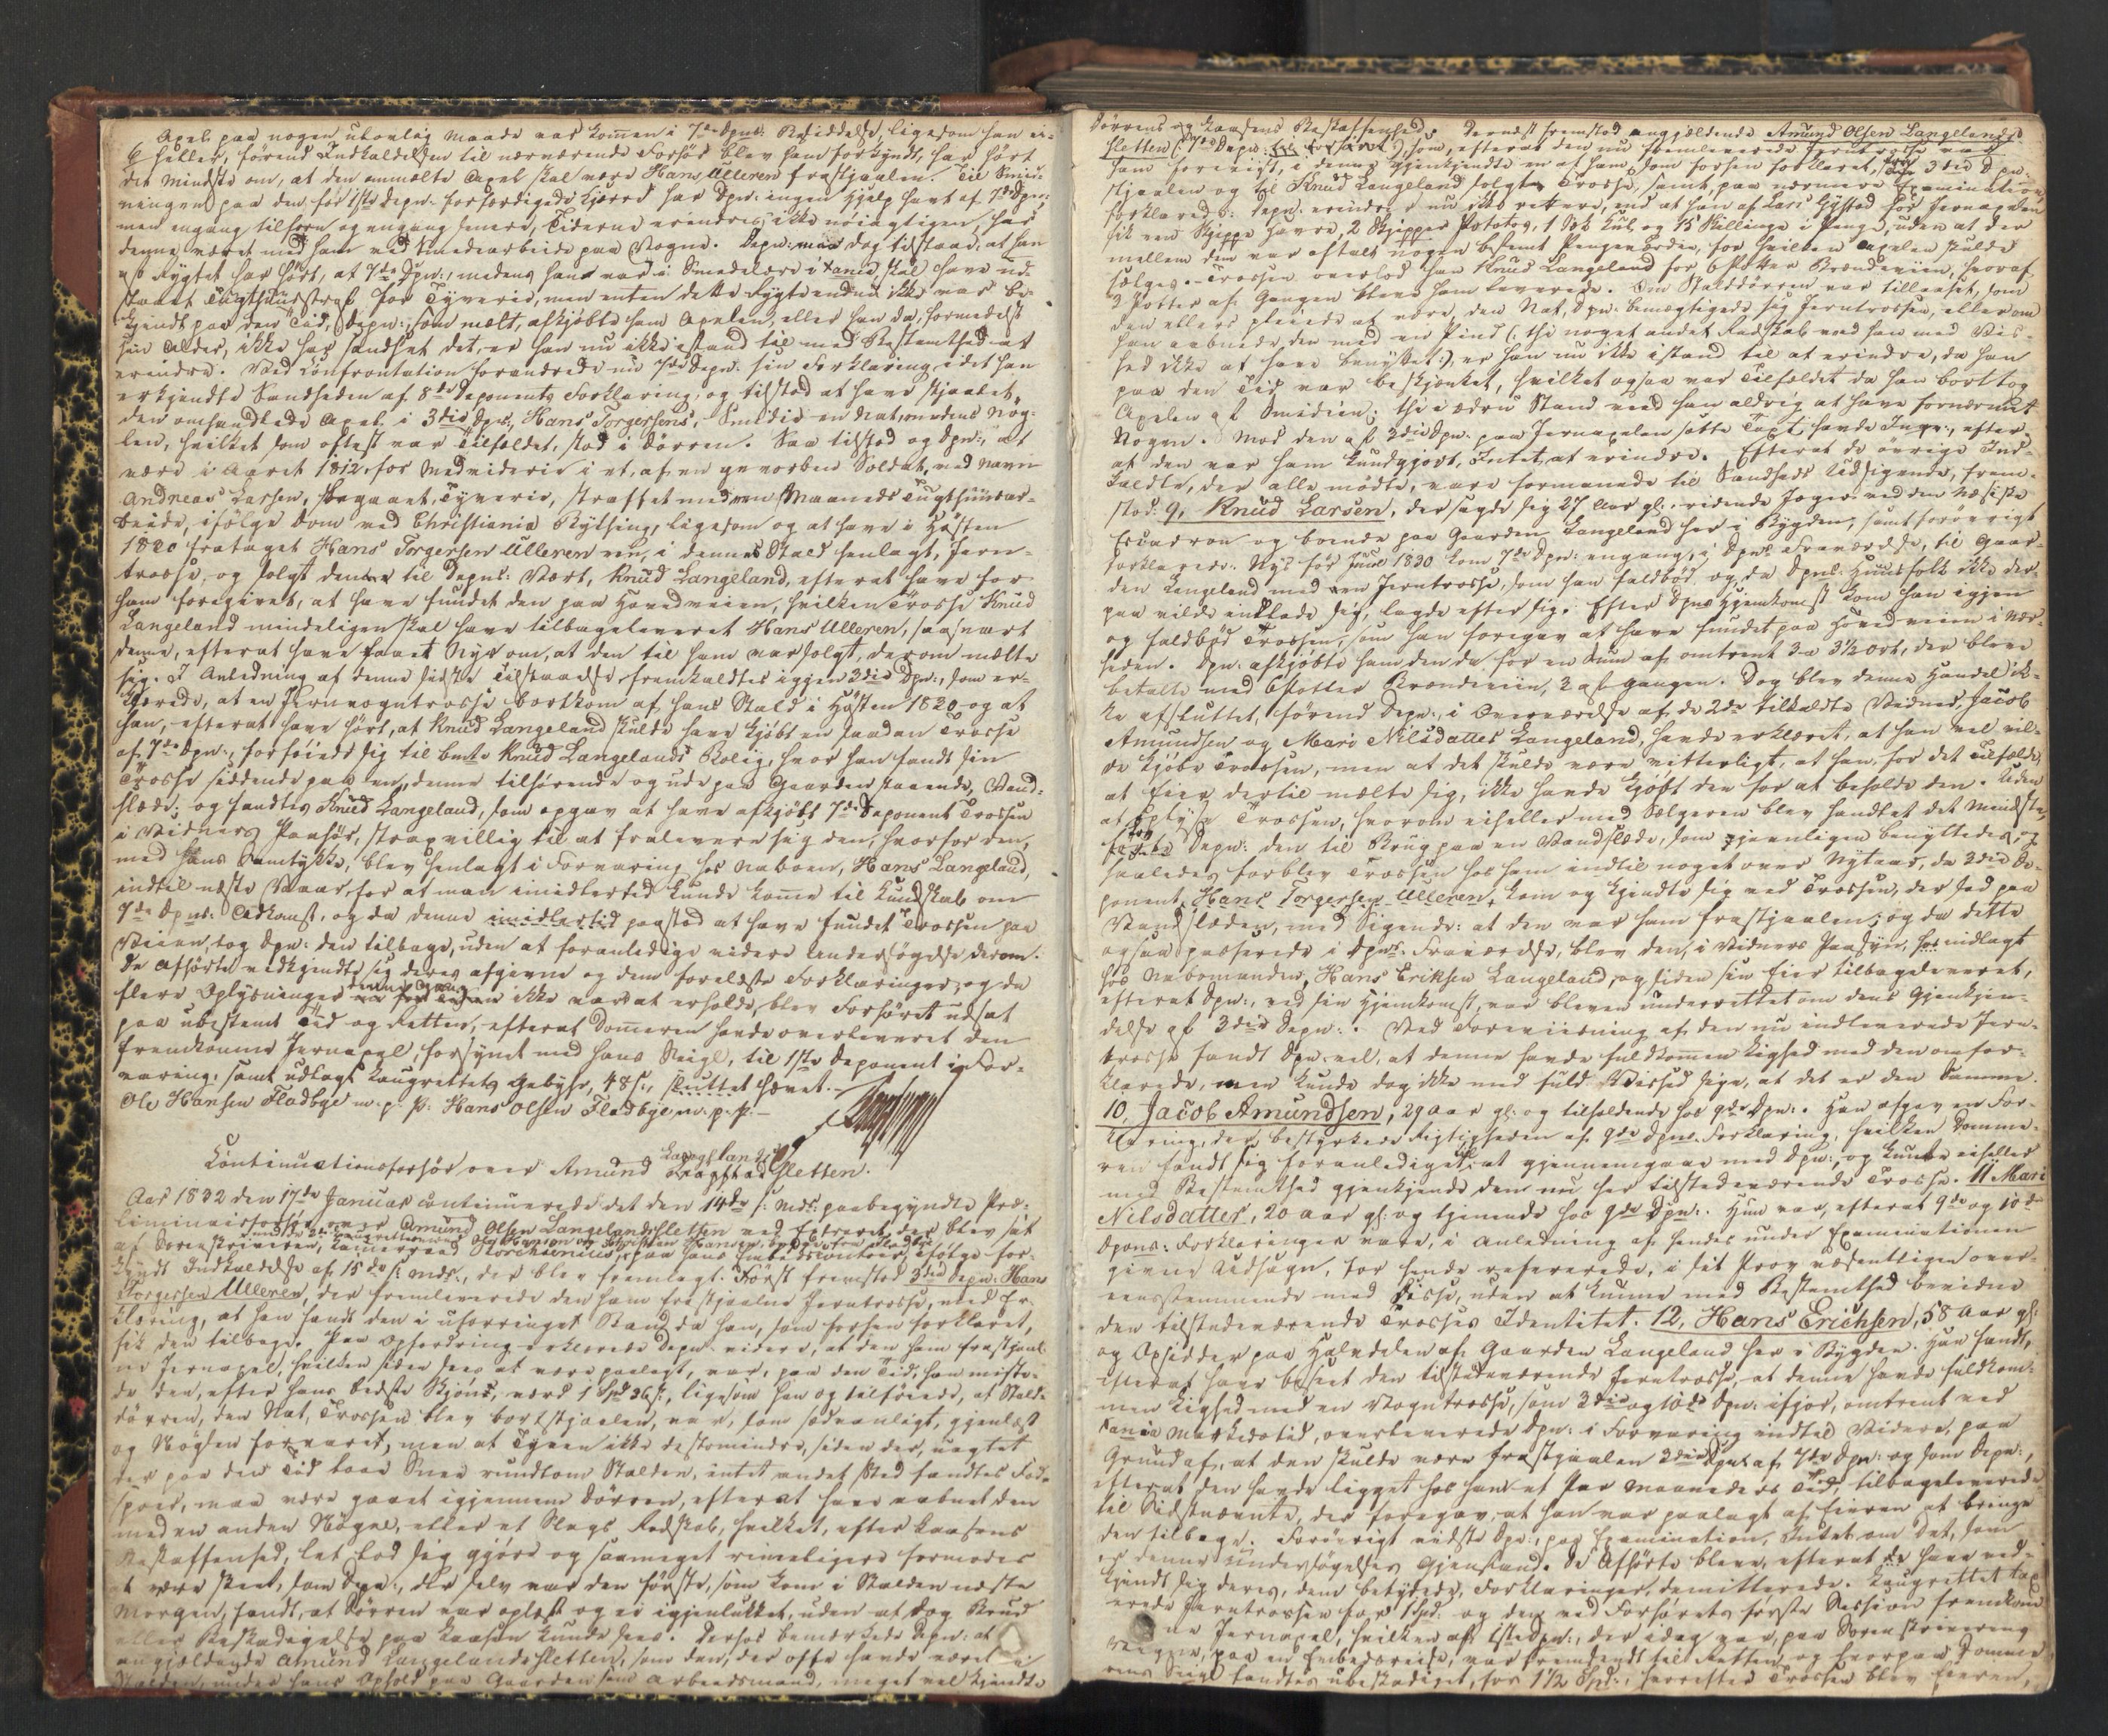 Axel paa nogen ulovlig Maade var kommen i 7de Dpns: Besiddelse, ligesom han ei-
heller, förend Indkaldelsen til nærværende Forhör blev ham forkyndt, har hört
det mindste om, at den anmeldte Axel skal være Hans Ulleren frastjaalen. Til
paa den for 1ste Depn: forfærdigede Kjerre har Dpn: ingen Hjelp havt af 7de Dpn:
men engang tilforn og engang senere, Tiderne erindres ikke nöiagtigen, har
denne været med ham ved Smedearbeide paa Vogne. Depn: maa dog tilstaae, at han
af Rygtet har hört, at 7de Dpn:, medens han var i Smedelære i Xania, skal have ud-
staaet Tugthuusstraf for Tyverie, men enten dette Rygte endnu ikke var be-
kjendt paa den Tid, Depn:, som mældt, afkjöbte ham Axelen, eller han da, formedelst
sin Alder, ikke har sandset det, er han nu ikke istand til med Bestemthed at
erindre. Ved Confrontation forandrede nu 7de Depn: sin Forklaring, idet han
erkjendte Sandheden af 8de Deponents Forklaring, og tilstod at have stjaalet
den omhandlede Axel i 3die Dpns, Hans Torgersens, Smedie en Nat, medens Nög-
len, hvilket som oftest var Tilfældet, stod i Dörren. Saa tilstod og Dpn:, at
være i Aaret 1812, for Medviderie i et, af en gevorben Soldat, ved Navn
Andreas Larsen, begaaet Tyverie, straffet med een Maaneds Tugthuusar-
beide, ifölge Dom ved Christiania Bything, ligesom og at have i Hösten
1820 frataget Hans Torgersen Ulleren een, i dennes Stald henlagt, Jern-
trosse, og solgt denne til Depns: Vært, Knud Langeland, efterat have for
ham foregivet, at have fundet den paa Hovedveien, hvilken Trosse Knud
Langeland mindeligen skal have tilbageleveret Hans Ulleren, saasnart
denne, efterat have faaet Nys om, at den til ham var solgt, derom mælte
sig. I Anledning af denne sidste Tilstaaelse fremkaldtes igjen 3die Dpn:, som er-
klærede, at en Jernvogntrosse bortkom af hans Stald i Hösten 1820 og at
han, efterat have hört, at Knud Langeland skulde have kjöbt en saadan Trosse
af 7de Dpn:, forföiede sig til bemte Knud Langelands Bolig, hvor han fandt sin
Trosse siddende paa en, denne tilhörende og ude paa Gaarden staaende, Vand-
slæde; og fandtes Knud Langeland, som opgav at have afkjöbt 7de Deponent Trossen
i Vidners Paahör, strax villig til at fralevere sig den, hvorfor den,
med hans Samtykke, blev henlagt i Forvaring hos Naboen, Hans Langeland,
indtil næste Vaar, for at man imidlertid kunde komme til Kundskab om
7de Dpns: Adkomst, og da denne imidlertid paastod at have fundet Trossen paa
Veien, tog Dpn: den tilbage, uden at foranledige videre Undersögelse derom.
De Afhörte vedkjendte sig deres afgivne og dem forelæste Forklaringer, og da
flere Oplysninger denne Gang ikke vare at erholde, blev Forhöret udsat
paa ubestemt Tid og Retten, efterat Dommeren havde overleveret den
fremkomne Jernaxel, forsynet med hans Seigl, til 1ste Deponent i For-
varing, samt udlagt Laugrettets Gebyhr, 48 s:, sluttet hævet.
Ole Hansen Fladbye m. p. P. Hans Olsen Fladbye m. p. P.
Continuationsforhör over Amund Langelandssletten.
Aar 1832 den 17de Januar continueredes det den 14de s: Mds: paabegyndte Præ-
liminairforhör over Amund Olsen Langelandssletten ved Extraret, der blev sat
af Sorenskriveren, Kammerraad Storckenius, paa hans Embedscontoir, ifölge for-
kyndt Indkaldelse af 15de s: Mds:, der blev fremlagt. Först fremstod 3die Depn: Hans
Torgersen Ulleren, der fremleverede den ham frastjaalne Jerntrosse, med Er-
klæring, at han fandt den i uforringet Stand, da han, som forhen forklaret,
fik den tilbage. Paa Opfordring erklærede Depn: videre, at den ham frastjaal-
ne Jernaxel, var, paa den Tid, han miste-
de den, efter hans bedste Skjön, værd 1 Spd 36 s:, ligesom han og tilföiede, at Stald-
dörren, den Nat, Trossen blev bortstjaalen, var, som sædvanligt, gjenlaast
og Nöglen forvaret, men at Tyven ikke destomindre, siden der, uagtet
der paa den Tid laae Snee rundtom Stalden, intet andet Sted fandtes Fod-
spoer, maa være gaaet igjennem Dörren, efterat have aabnet den
med en anden Nögle, eller et Slags Redskab, hvilket, efter Laasens
Beskaffenhed, let lod sig gjöre og saameget rimeligere formodes
at være skeet, som Dpn:, der selv var den förste, som kom i Stalden næste
Morgen, fandt, at Dörren var oplaast og ei igjenlukket, uden at dog Brud
eller Beskadigelse paa Laasen kunde sees. Derhos bemærkede Depn: at
angjældende Amund Langelandssletten, som den, der ofte havde været i
Stalden, under hans Ophold paa Gaarden som Arbeidsmand, meget vel kjendte
Dörrens og Laasens Beskaffenhed. Dernæst fremstod angjældende Amund Olsen Langelands-
sletten (7de Depn:), som, efterat den nu fremleverede Jerntrosse var
ham foreviist, i denne gjenkjendte en af ham, som forhen forklaret, fra 3die Dpn:
stjaalen og til Knud Langeland solgte Trosse, samt, paa nærmere Examination
forklarede: Depn: erindrer nu ikke rettere, end at han af Lars Gystad for Jernaxelen
fik een Skjeppe Havre, 2 Skjepper Potetos, 1 Kul og 15 Skillinge i Penge, uden at der
mellem dem var aftalt nogen bestemt Penge-, for hvilken Axelen skulde
sælges. Trossen overlod han Knud Langeland for 6 Potter Brændeviin, hvoraf
2 Potter af Gangen bleve ham leverede. Om Stalddörren var tillaaset, som
den ellers pleiede at være, den Nat, Dpn: bemægtigede sig Jerntrossen, eller om
han aabnede den med en Pind (: thi noget andet Redskab veed han med Vis-
hed ikke at have benyttet :), er han nu ikke istand til at erindre, da han
paa den Tid var beskjænket, hvilket ogsaa var Tilfældet da han borttog
Axelen af Smedien; thi i ædru Stand veed han aldrig at have fornærmet
Nogen. Mod den af 3die Dpn: paa Jernaxelen satte Taxt, havde Ingen, efter-
at den var ham kundgjort, Intet at erindre. Efterat de övrige Ind-
kaldte, der alle mödte, vare formanede til Sandheds Udsigende, frem-
stod: 9, Knud Larsen, der sagde sig 27 Aar gl:, ridende Jæger ved den
Escadron og boende paa Gaarden Langeland her i Bygden; samt foröwrigt
forklarede: Nys for Juul 1830 kom 7de Dpn: engang, i Dpns Fraværelse, til Gaar-
den Langeland med een Jerntrosse, som han faldböd, og, da Dpns: Huusfolk ikke der-
paa vilde indlade sig, lagde efter sig. Efter Dpns Hjemkomst kom han igjen
og faldböd Trossen, som han foregav at have fundet paa Hovedveien i Nær-
heden. Dpn: afkjöbte ham den da for en Sum af omtrent 3 a 3 1/2 Ort, der bleve
betalte med 6 Potter Brændeviin, 2 af Gangen. Dog blev denne Handel ik-
ke afsluttet, förend Depn:, i Overværelse af de 2de tilkaldte Vidner, Jacob
Amundsen og Mari Nilsdatter Langeland, havde erklæret, at han vel vil-
de kjöbe Trossen, men at det skulde være vitterligt, at han, for det Tilfælde,
at Eier dertil mælte sig, ikke havde kjöbt den for at beholde den. Uden
at oplyse Trossen, hvorom eiheller med Sælgeren blev handlet det mindste,
Depn: den til Brug paa en Vandslæde, som jevnligen benyttedes, og
saaledes forblev Trossen hos ham indtil noget over Nytaar, da 3die De-
ponent, Hans Torgersen Ulleren, kom og kjendte sig ved Trossen, der sad paa
Vandslæden, med Sigende: at den var ham frastjaalen; og da dette
ogsaa passerede i Dpns: Fraværelse, blev den, i Vidners Paasyn, indlagt
hos Nabomanden, Hans Eriksen Langeland, og siden sin Eier tilbageleveret,
efterat Dpn:, ved sin Hjemkomst, var bleven underrettet om dens Gjenkjen-
delse af 3die Depn:. Ved Foreviisning af den nu indleverede Jern-
trosse fandt Dpn: vel, at denne havde fuldkommen Lighed med den omfor-
klarede, men kunde dog ikke med fuld Vished sige, at det er den Samme.
10, Jacob Amundsen, 29 Aar gl: og tilholdende hos 9de Dpn:. Han afgav en For-
klaring, der bestyrkede Rigtigheden af 9de Dpns Forklaring, hvilken Domme-
ren fandt sig foranlediget at gjennemgaae med Dpn:, og kunde eiheller
med Bestemthed gjenkjende den nu her tilstedeværende Trosse. 11 Mari
Nilsdatter, 20 Aar gl: og tjenende hos 9de Dpn:. Hun var, efterat 9de og 10de
Dpns: Forklaringer vare, i Anledning af hendes under Examinationen
givne Udsagn, for hende refererede, i sit Prov væsentligen over-
eensstemmende med Disse, uden at kunne med Bestemthed bevidne
den tilstedeværende Trosses Identitet. 12, Hans Erichsen, 58 Aar gl:
og Opsidder paa Halvdelen af Gaarden Langeland her i Bygden. Han fandt,
efterat have beseet den tilstedeværende Jerntrosse, at denne havde fuldkom-
men Lighed med en Vogntrosse, som 3die og 10de Dpn: ifjor, omtrent ved
Xania Markedstid, overleverede Dpn: i Forvaring indtil Videre, paa
Grund af, at den skulde være frastjaalen 3die Dpn: af 7de Dpn: og som Depn:,
efterat den havde ligget hos ham et Par Maaneders Tid, tilbageleverede
til Sidstnævnte, der foregav, at han var paalagt af Eieren at bringe
den tilbage. Foröwrigt vidste Dpn:, paa Examination, Intet om Det, som
er denne Undersögelses Gjenstand. De Afhörte bleve, efterat de have ved-
kjendt sig deres, dem betydede, Forklaringer, demitterede. Laugrettet tax-
erede Jerntrossen for 1 Spd: og den ved Forhörets förste Session fremkom-
ne Jernaxel, hvilken af 1ste Dpn:, der idag var, paa Sorenskriverens
Vegne, paa en Embedsreise, var fremsendt til Retten, og hvorpaa Domme-
rens Seigl fandtes ubeskadiget, for 1 1/2 Spd:, hvorefter Trossen blev Eieren,